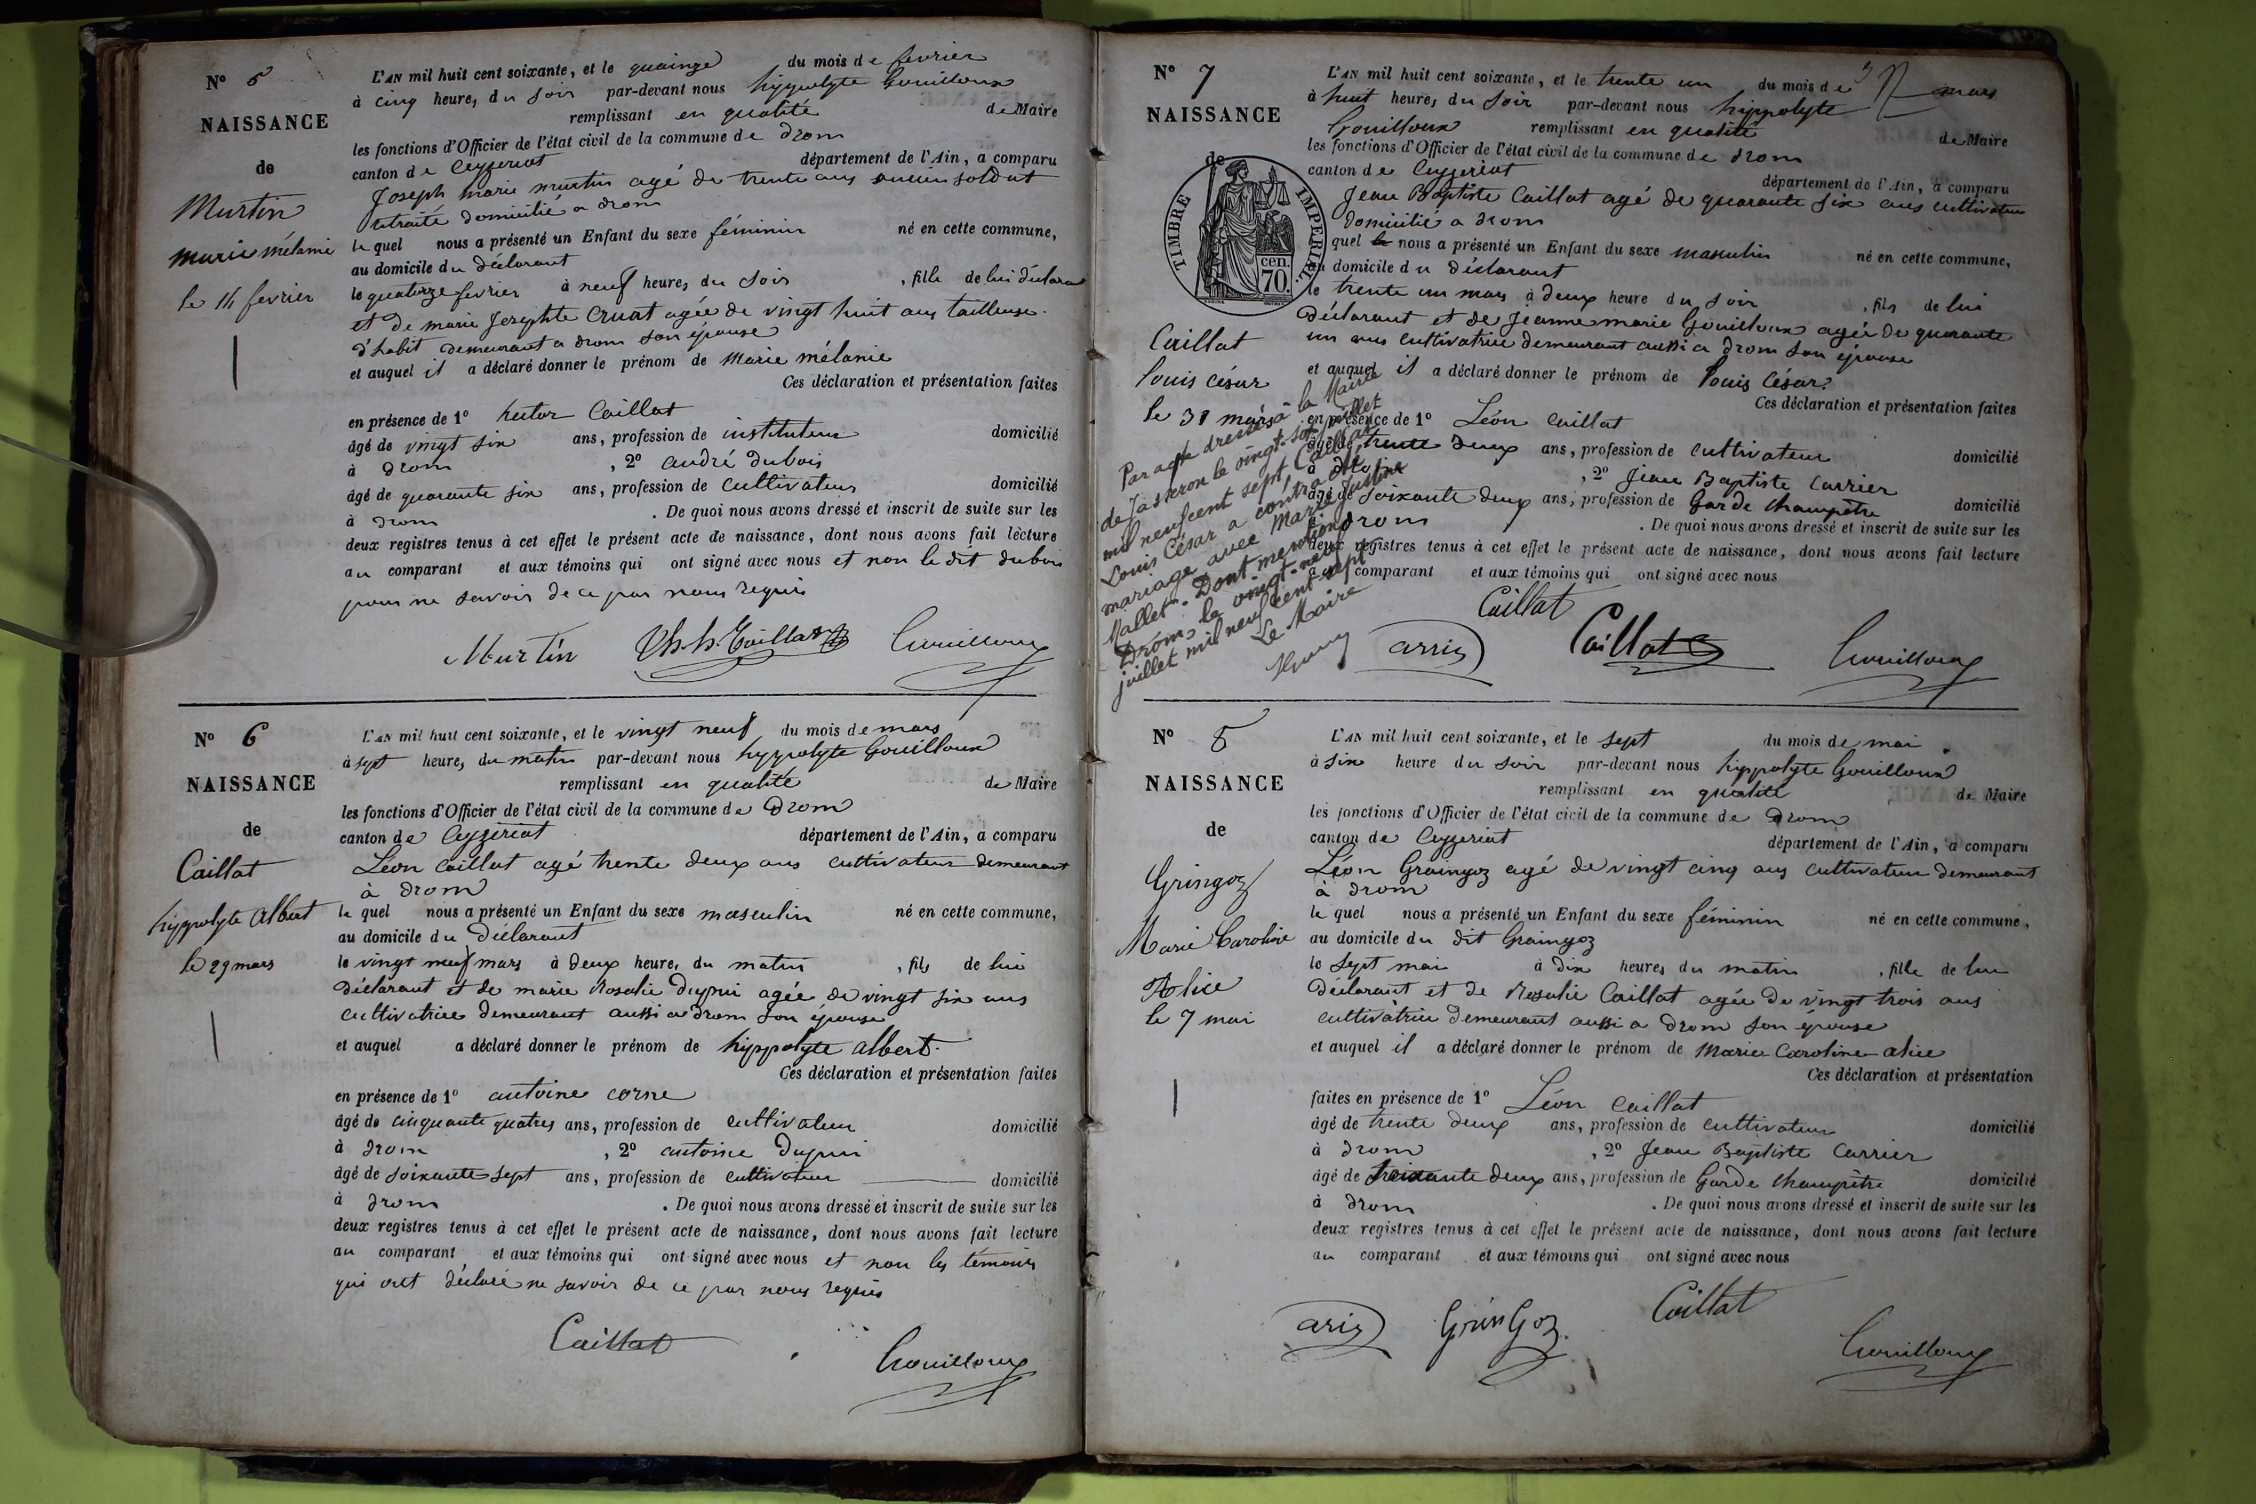 N° 5
NAISSANCE
de
Martin
marie mélanie
le 14 fevrier
L'AN mil huit cent soixante, et le quainze du mois de fevrier
à cinq heures du soir par-devant nous hyppolyte Gouilloux
remplissant en qualité de Maire
les fonctions d'Officier de l'état civil de la commune de drom
canton de Ceyzeriat département de l'Ain, a comparu
Joseph marie martin agé de trente ans ancien soldat
retraité domicilié a drom
le quel nous a présenté un Enfant du sexe féminin né en cette commune,
au domicile du déclarant
le quatorze fevrier à neuf heures du soir , fille de lui déclarant
et de marie Josephte Cruat agée de vingt huit ans tailleuse
d'habit demeurant a drom son épouse
et auquel il a déclaré donner le prénom de Marie mélanie
Ces déclaration et présentation faites
en présence de 1° hector Caillat
âgé de vingt six ans, profession de instituteur domicilié
à drom , 2° andré dubois
âgé de quarante six ans, profession de cultivateur domicilié
à drom . De quoi nous avons dressé et inscrit de suite sur les
deux registres tenus à cet effet le présent acte de naissance, dont nous avons fait lecture
au comparant et aux témoins qui ont signé avec nous et non le dit dubois
pour ne savoir de ce par nous requis
Martin Caillat Gouilloux
N° 6
NAISSANCE
de
Caillat
hyppolyte Albert
le 29 mars
L'AN mil huit cent soixante, et le vingt neuf du mois de mars
à sept heures du matin par-devant nous hyppolyte Gouilloux
remplissant en qualité de Maire
les fonctions d'Officier de l'état civil de la commune de drom
canton de Ceyzeriat département de l'Ain, a comparu
Léon Caillat agé trente deux ans cultivateur demeurant
à drom
le quel nous a présenté un Enfant du sexe masculin né en cette commune,
au domicile du déclarant
le vingt neuf mars à deux heures du matin , fils de lui
déclarant et de marie Rosalie Dupui agée de vingt six ans
cultivatrice demeurant aussi a drom son épouse
et auquel a déclaré donner le prénom de hyppolyte albert.
Ces déclaration et présentation faites
en présence de 1° antoine corne
âgé de cinquante quatres ans, profession de cultivateur domicilié
à drom , 2° antoine Dupui
âgé de soixante sept ans, profession de cultivateur domicilié
à drom . De quoi nous avons dressé et inscrit de suite sur les
deux registres tenus à cet effet le présent acte de naissance, dont nous avons fait lecture
au comparant et aux témoins qui ont signé avec nous et non les témoins
qui ont déclaré ne savoir de ce par nous requis
Caillat Gouilloux
N° 7
NAISSANCE
de
TIMBRE IMPERIAL
70 cen.
Caillat
louis césar
le 31 mars
L'AN mil huit cent soixante, et le trente un du mois de mars
à huit heures du soir par-devant nous hippolyte
Gouilloux remplissant en qualité de Maire
les fonctions d'Officier de l'état civil de la commune de drom
canton de Ceyzeriat département de l'Ain, a comparu
Jean Baptiste Caillat agé de quarante six ans cultivateur
domicilié a drom
quel nous a présenté un Enfant du sexe masculin né en cette commune,
au domicile du déclarant
le trente un mars à deux heure du soir , fils de lui
déclarant et de Jeanne marie Gouilloux agée de quarante
un ans cultivatrice demeurant aussi a drom son épouse
et auquel il a déclaré donner le prénom de louis César.
Ces déclaration et présentation faites
en présence de 1° Léon caillat
âgé de trente deux ans, profession de cultivateur domicilié
à drom , 2° Jean Baptiste Carrier
âgé de soixante deux ans, profession de Garde champêtre domicilié
à drom . De quoi nous avons dressé et inscrit de suite sur les
deux registres tenus à cet effet le présent acte de naissance, dont nous avons fait lecture
au comparant et aux témoins qui ont signé avec nous
Par acte dressé à la Mairie
de Jasseron le vingt-sept juillet
mil neuf cent sept, Caillat
Louis César a contracté
mariage avec Marie Justine
Mallet. Dont mention
Drom, le vingt-neuf
juillet mil neuf cent sept
Le Maire
Caillat
Caillat Gouilloux
N° 8
NAISSANCE
de
Gringoz
Marie Caroline
Alice
le 7 mai
L'AN mil huit cent soixante, et le sept du mois de mai
à six heure du soir par-devant nous hyppolyte Gouilloux
remplissant en qualité de Maire
les fonctions d'Officier de l'état civil de la commune de drom
canton de Ceyzeriat département de l'Ain, a comparu
Léon Graingoz agé de vingt cinq ans cultivateur demeurant
à drom
le quel nous a présenté un Enfant du sexe féminin né en cette commune,
au domicile du dit Graingoz
le sept mai à dix heures du matin , fille de lui
déclarant et de Rosalie Caillat agée de vingt trois ans
cultivatrice demeurant aussi a drom son épouse
et auquel il a déclaré donner le prénom de Marie Caroline alice
Ces déclaration et présentation
faites en présence de 1° Léon caillat
âgé de trente deux ans, profession de cultivateur domicilié
à drom , 2° Jean Baptiste Carrier
âgé de soixante deux ans, profession de Garde champêtre domicilié
à drom . De quoi nous avons dressé et inscrit de suite sur les
deux registres tenus à cet effet le présent acte de naissance, dont nous avons fait lecture
au comparant et aux témoins qui ont signé avec nous
GrinGoz Caillat
Gouilloux